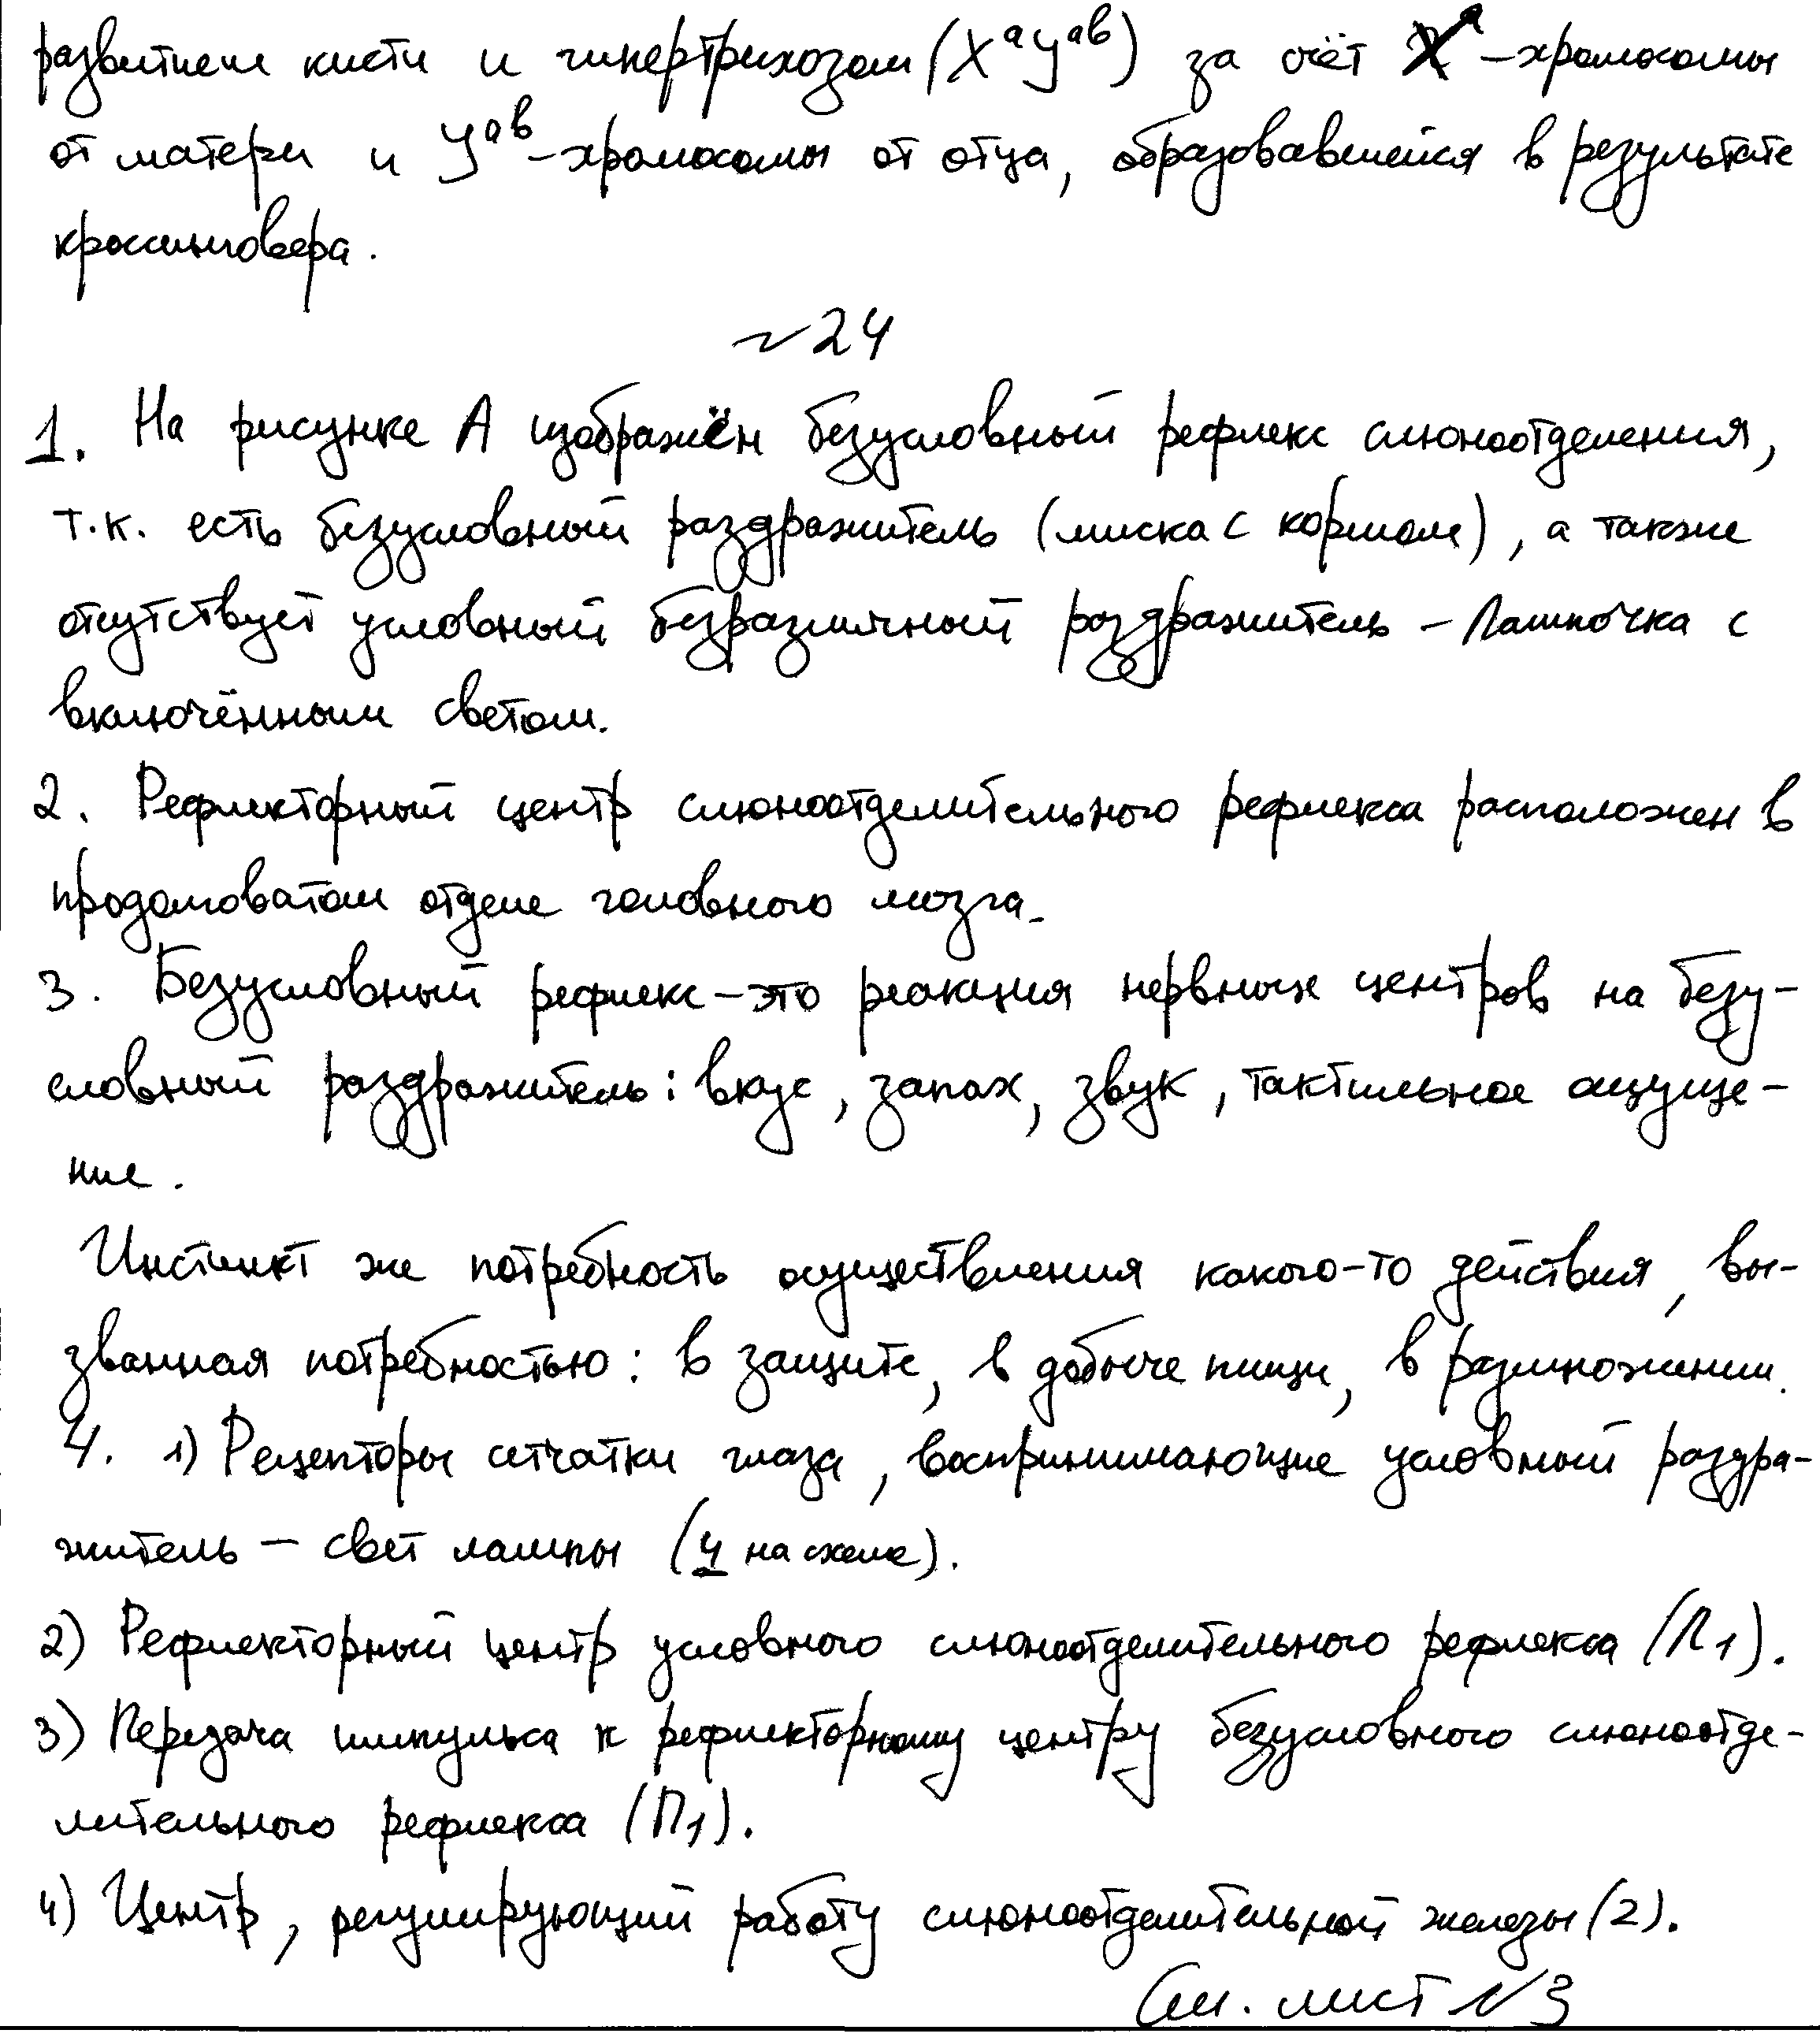 развитием кисти и гипертрихозом (XᵃYᵃᵇ) за счёт Xᵃ-хромосомы
от матери и Yᵃᵇ-хромосомы от отца, образовавшейся в результате
кроссинговера.
№24
1. На рисунке А изображён безусловный рефлекс слюноотделения,
т.к. есть безусловный раздражитель (миска с кормом), а также
отсутствует условный безразличный раздражитель – Лампочка с
включённым светом.
2. Рефлекторный центр слюноотделительного рефлекса расположен в
продолговатом отделе головного мозга.
3. Безусловный рефлекс – это реакция нервных центров на безу-
словный раздражитель: вкус, запах, звук, тактильное ощуще-
ние.
Инстинкт же потребность осуществления какого-то действия, вы-
званная потребностью: в защите, в добыче пищи, в размножении.
4. 1) Рецепторы сетчатки глаза, воспринимающие условный раздра-
житель – свет лампы (4 на схеме).
2) Рефлекторный центр условного слюноотделительного рефлекса (Л1).
3) Передача импульса к рефлекторному центру безусловного слюноотде-
лительного рефлекса (П1).
4) Центр, регулирующий работу слюноотделительной железы (2).
См. лист №3